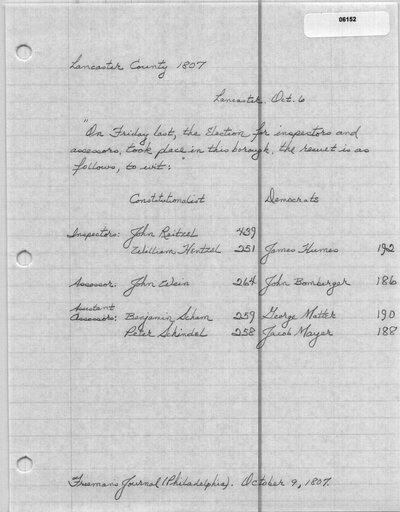 06152
Lancaster County 1807
Lancaster, Oct. 6
"On Friday last, the Election for inspectors and
assessors, took place in this borough, the result is as
follows, to wit:"
Constitutionalist Democrats
Inspectors: John Reitzel 439
William Hentzel 251 James Humes 192
Assessor: John Wein 264 John Bomberger 186
Assistant
Assessors: Benjamin Schaum 259 George Matter 190
Peter Schindel 258 Jacob Mayer 188
Freeman's Journal (Philadelphia). October 9, 1807.